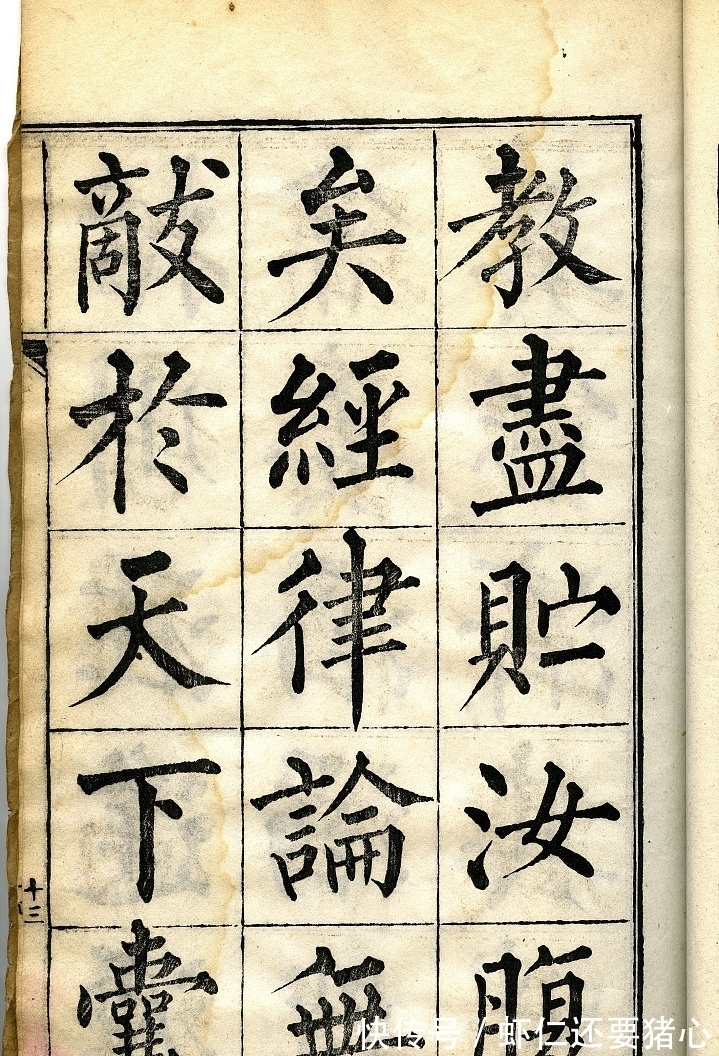 教盡貯汝腹
矣經律論無
敵於天下囊
十三
快传号 / 虾仁还要猪心